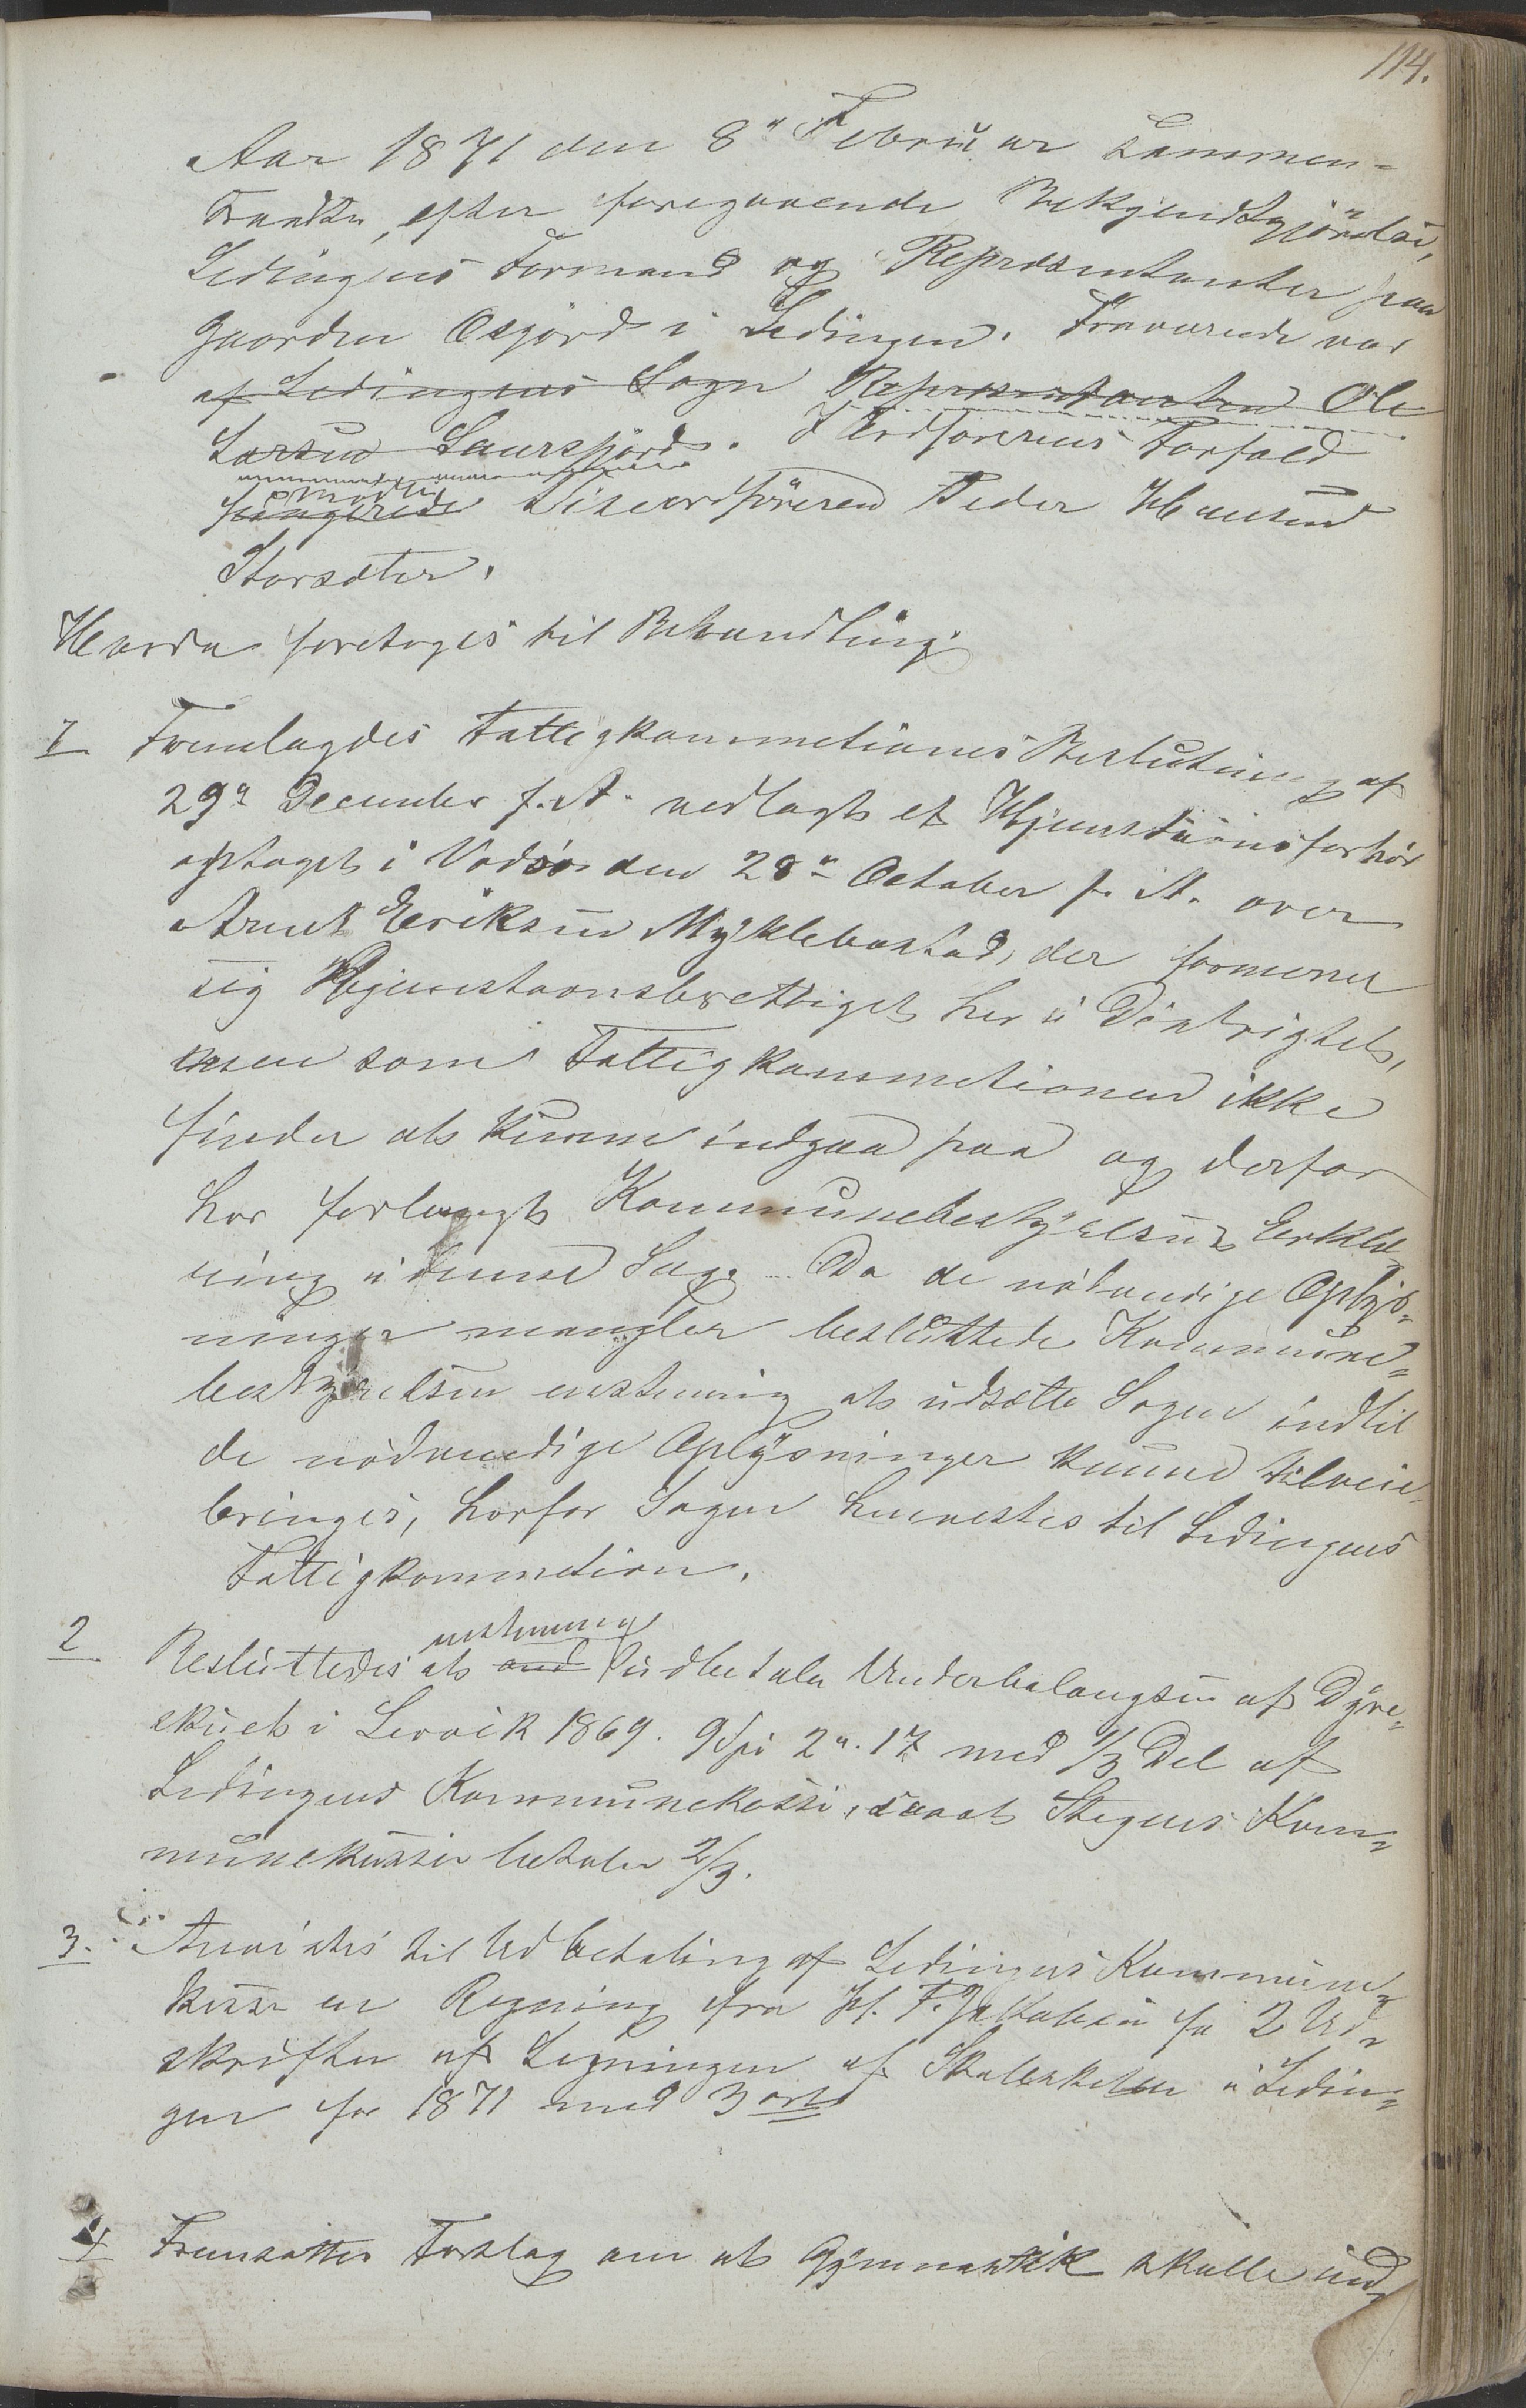 114.
Aar 1871 den 8de Februar sammen-
traadte, efter foregaaende Bekjendtgjörelse,
Ledingens Formænd og Repræsentanter paa
Gaarden Osfjord i Ledingen. Fraværende var
af Ledingens Sogn Repræsentanten Ole
Larsen Saursfjord. I Ordførerens Forfald
fungerede mødte Viseordføreren Peder Hansen
Storsæter.
Hvorda foretoges til Behandling:
1 Fremlagdes Fattigkommetionens Beslutning af
29de December f. A. vedlagt et Hjemstavnsforhör
optaget i Vadsø den 28de October f. A. over
Arnt Eriksen Myklebostad, der formener
sig Hjemstavnsberettiget her i Distrigtet,
men som Fattigkommetionen ikke
finder at kunne indgaa paa og derfor
har forlangt Kommunebestyrelsens Erklæ-
ring i denne Sag. Da de nødvendige Oplys-
ninger mangler besluttede Kommune-
bestyrelsen enstemmig at udsætte Sagen indtil
de nødvendige Oplysninger kunne tilveie-
bringes, hvorfor Sagen henvistes til Ledingens
Fattigkommetion.
2 Besluttedes enstemmig at and udbetale Underbalangsen af Dyre-
skuet i Lervik 1869. 9 Spd 2 ". 17 med 1/3 Del af
Ledingens Kommunekasse, saaat Stegens Kom-
munekasse betaler 2/3.
3. Anvistes til Udbetaling af Ledingens Kommune-
kasse en Regning fra H. F. Jakobsen for 2 Ud-
skrifter af Ligningen af Skoleskatten i Ledin-
gen for 1871 med 3 ort
4 Fremsattes Forslag om at Gymnastik skulle ind-